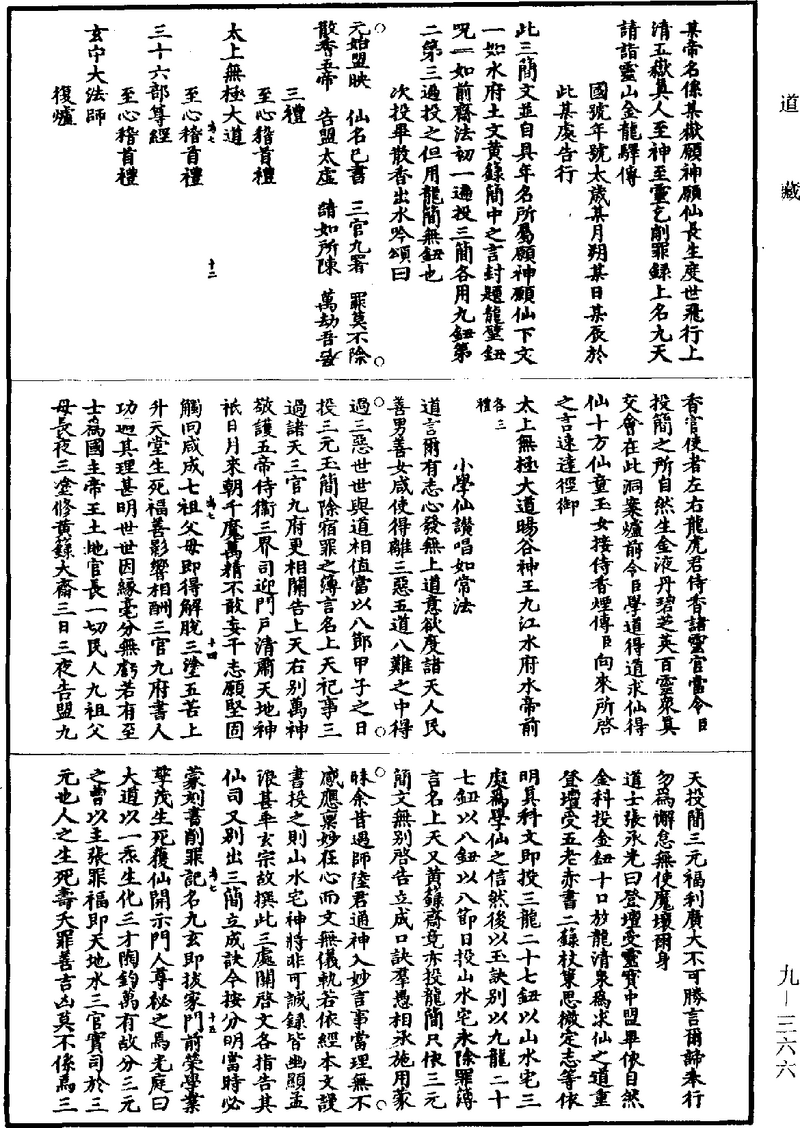 道藏
某帝名係某嶽願神願仙長生度世飛行上
清五嶽真人至神至靈乞削罪錄上名九天
請詣靈山金龍驛傳
國號年號太歲某月朔某日某辰於
此某處告行
此三簡文並自具年名所屬願神願仙下文
一如水府土文黃錄簡中之言封題龍璧鈕
呪一如前齋法初一過投三簡各用九鈕第
二第三過投之但用龍簡無鈕也
次投畢散香出水吟頌曰
元始盟映 仙名已書 三官九署 罪莫不除
散香五帝 告盟太虛 請如所陳 萬劫吾
三禮
至心稽首禮
太上無極大道
至心稽首禮
三十六部尊經
至心稽首禮
玄中大法師
復爐
十三
香官使者左右龍虎君侍香諸靈官當令臣
投簡之所自然生金液丹碧芝英百靈眾真
交會在此洞案爐前令臣學道得道求仙得
仙十方仙童玉女接侍香煙傳臣向來所啓
之言速達徑御
太上無極大道暘谷神王九江水府水帝前
各三禮
小學仙讚唱如常法
道言爾有志心發無上道意欲度諸天人民
善男善女咸使得離三惡五道八難之中得
過三惡世世與道相值當以八節甲子之日
投三元玉簡除宿罪之簿言名上天祀事三
過諸天三官九府更相開告上天右別萬神
敬護五帝侍衛三界司迎門戶清肅天地神
祇日月來朝千魔萬精不敢妄干志願堅固
觸向咸成七祖父母即得解脫三塗五苦上
升天堂生死福善影響相酬三官九府書人
功過其理甚明世世因緣毫分無虧若有至
士為國主帝王土地官長一切民人九祖父
母長夜三塗修黃籙大齋三日三夜告盟九
十四
天投簡三元福利廣大不可勝言爾諦奉行
勿為懈怠無使魔壞爾身
道士張承光曰登壇受靈寶中盟畢依自然
金科投金鈕十口放龍清泉為求仙之道重
登壇受五老赤書二籙杖策思微定志等依
明具科文即投三龍二十七鈕以山水宅三
處為學仙之信然後以玉訣別以九龍二十
七鈕以八鈕以八節日投山水宅永除罪簿
言名上天又黃籙齋竟亦投龍簡只依三元
簡文無別啓告立成口訣羣愚相承施用蒙
昧余昔過師陸君通神入妙言事當理無不
感應稟妙在心而文無儀軌若依經本文謾
書投之則山水宅神將非可誠錄皆幽顯孟
浪甚乖玄宗故撰此三處關啓文各指告其
仙司又別出三簡立成訣令按分明當時必
蒙刻書削罪記名九玄即拔家門前榮學業
尊茂生死獲仙開示門人尊秘之焉先庭曰
大道以一炁生化三才陶鈞萬有故分三元
之曹以主張罪福即天地水三官實司於三
元也人之生死壽夭罪善吉凶莫不係焉三
十五
九—三六六